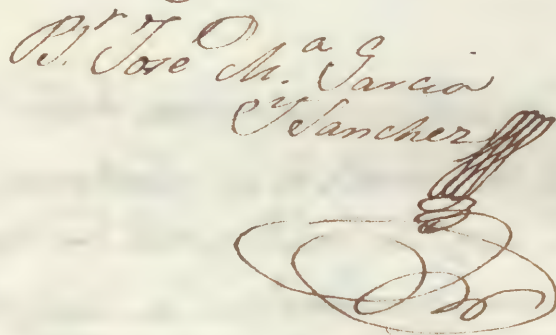 Br. José M.ª Garcia
y Sanchez